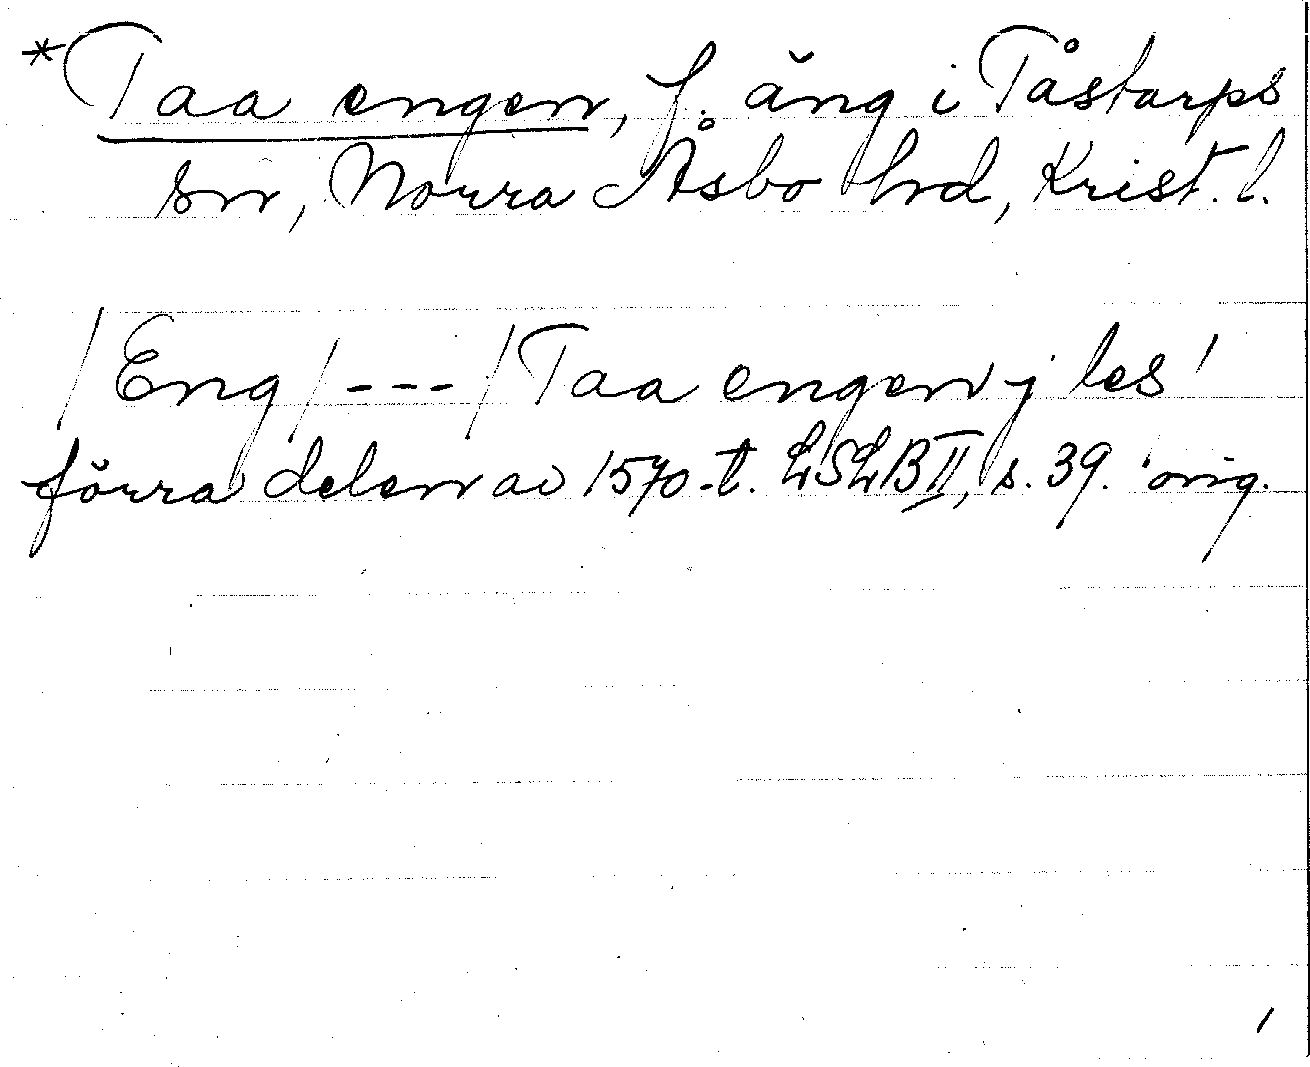 *Taa engen, f. äng i Tåstarps
sn, Norra Åsbo hd, Krist. l.
/Eng/ --- /Taa engen j les'
förra delen av 1570-t. LSLB II, s. 39. orig.
/